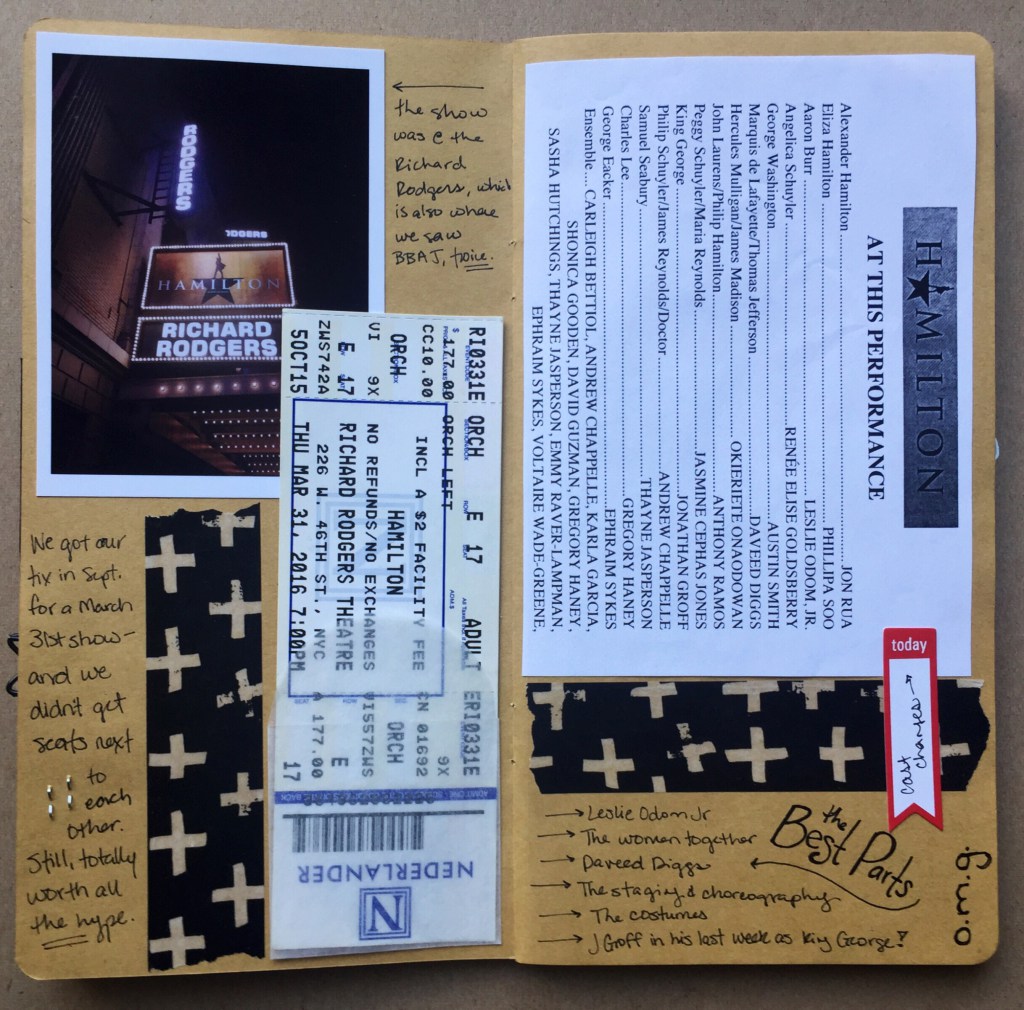 RODGERS
RODGERS
HAMILTON
RICHARD
RODGERS
the show
was @ the
Richard
Rodgers, which
is also where
we saw
BBAJ, twice.
RI0331E ORCH E 17 ADULT ERI0331E
$ 177.00 ORCH LEFT
CC10.00 INCL A $2 FACILITY FEE CN 01692 9X
ORCH HAMILTON ORCH
VI 9X NO REFUNDS/NO EXCHANGES VI557ZWS
E 17 RICHARD RODGERS THEATRE E
ZWS742A 226 W. 46TH ST., NYC A 177.00
5OCT15 THU MAR 31, 2016 7:00PM 17
NEDERLANDER
N
We got our
tix in Sept.
for a March
31st show—
and we
didn't get
seats next
to
each
other.
Still, totally
worth all
the hype.
HAMILTON
AT THIS PERFORMANCE
Alexander Hamilton....JON RUA
Eliza Hamilton....PHILLIPA SOO
Aaron Burr....LESLIE ODOM, JR.
Angelica Schuyler....RENÉE ELISE GOLDSBERRY
George Washington....AUSTIN SMITH
Marquis de Lafayette/Thomas Jefferson....DAVEED DIGGS
Hercules Mulligan/James Madison....OKIERIETE ONAODOWAN
John Laurens/Philip Hamilton....ANTHONY RAMOS
Peggy Schuyler/Maria Reynolds....JASMINE CEPHAS JONES
King George....JONATHAN GROFF
Philip Schuyler/James Reynolds/Doctor....ANDREW CHAPPELLE
Samuel Seabury....THAYNE JASPERSON
Charles Lee....GREGORY HANEY
George Eacker....EPHRAIM SYKES
Ensemble.... CARLEIGH BETTIOL, ANDREW CHAPPELLE, KARLA GARCIA,
SHONICA GOODEN, DAVID GUZMAN, GREGORY HANEY,
SASHA HUTCHINGS, THAYNE JASPERSON, EMMY RAVER-LAMPMAN,
EPHRAIM SYKES, VOLTAIRE WADE-GREENE,
today
cast
changes
the
Best Parts
Leslie Odom Jr
The women together
Daveed Diggs
The staging & choreography
The costumes
J Groff in his last week as King George!
o.m.g.